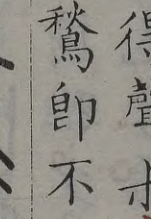 得聲
鶖即不